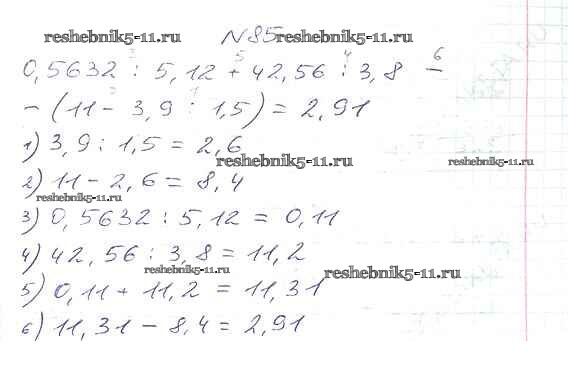 №85
reshebnik5-11.ru reshebnik5-11.ru
3 5 4 6
0,5632 : 5,12 + 42,56 : 3,8 –
2 1
– (11 – 3,9 : 1,5) = 2,91
1) 3,9 : 1,5 = 2,6
reshebnik5-11.ru reshebnik5-11.ru
2) 11 – 2,6 = 8,4
reshebnik5-11.ru
3) 0,5632 : 5,12 = 0,11
4) 42,56 : 3,8 = 11,2
reshebnik5-11.ru reshebnik5-11.ru
5) 0,11 + 11,2 = 11,31
6) 11,31 – 8,4 = 2,91